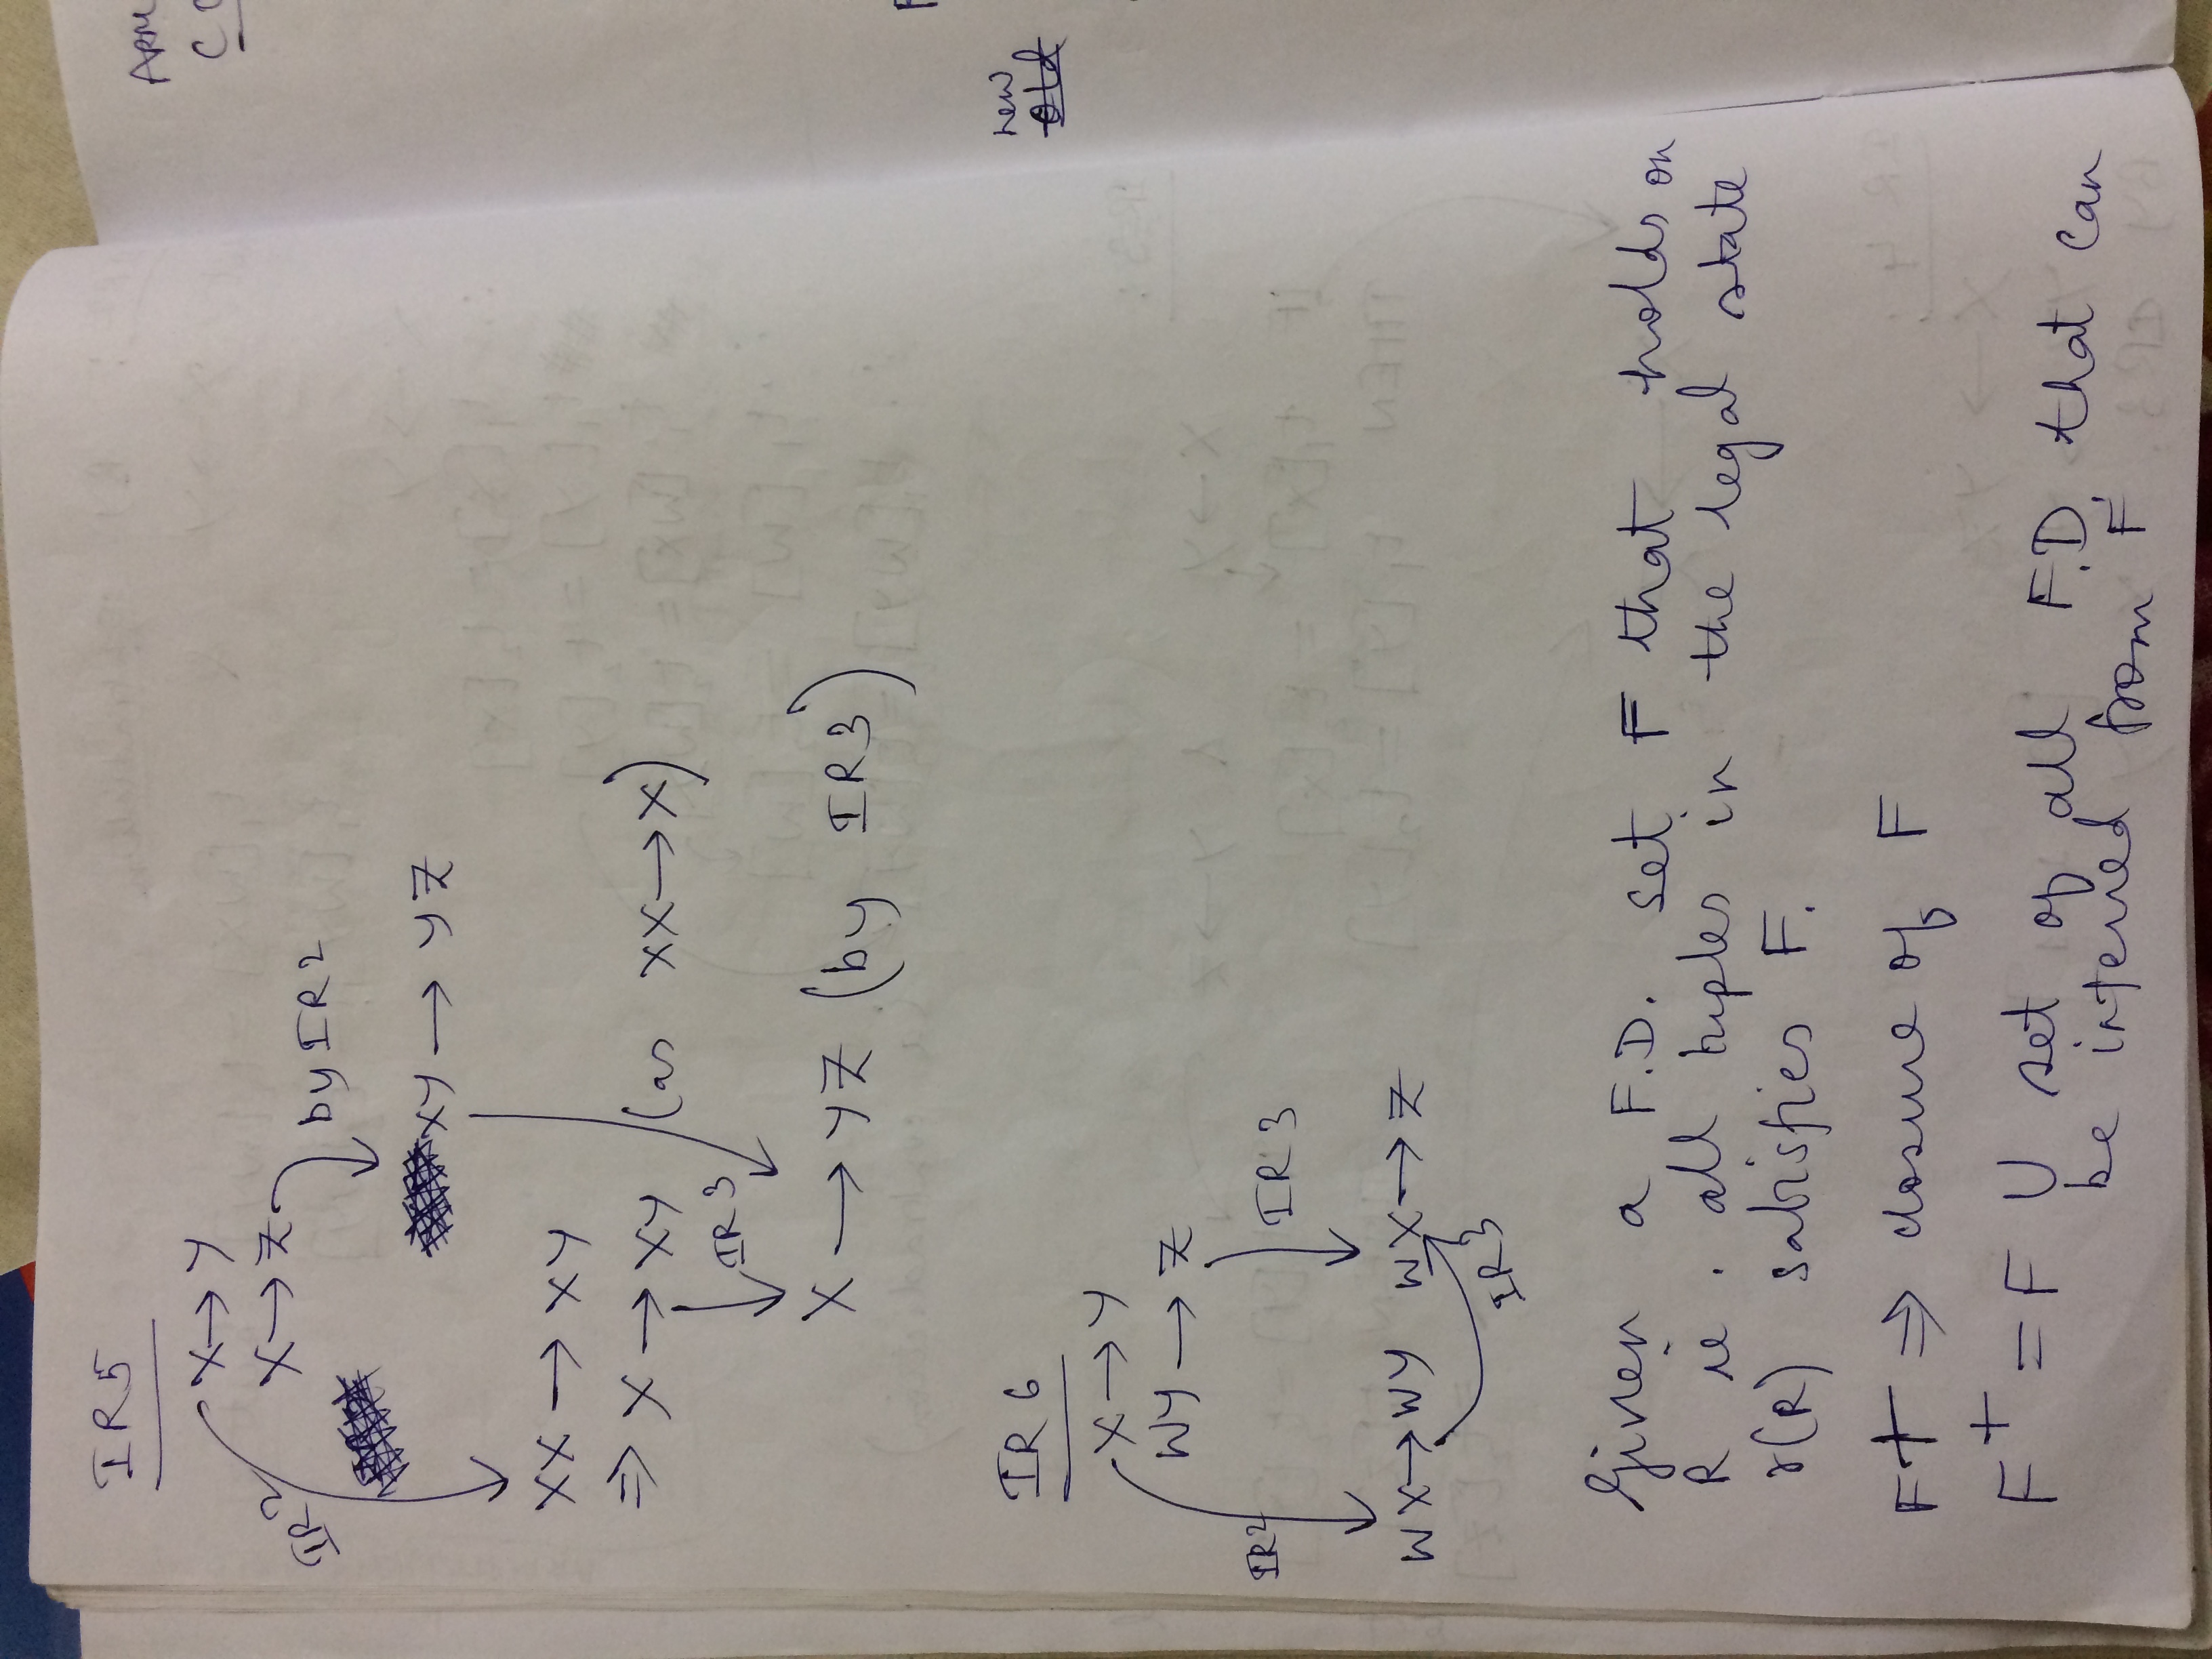 IR5
X → Y
IR2
X → Z
by IR2
XY → YZ
XX → XY
⇒ X → XY (as XX → X)
IR3
X → YZ (by IR3)
IR6
X → Y
WY → Z
IR2
IR3
WX → WY
WX → Z
IR3
Given a F.D. set F that holds on
R ie. all tuples in the legal state
r(R) satisfies F.
F+ ⇒ closure of F
F⁺ = F ∪ set of all F.D. that can
be inferred from F
new
old